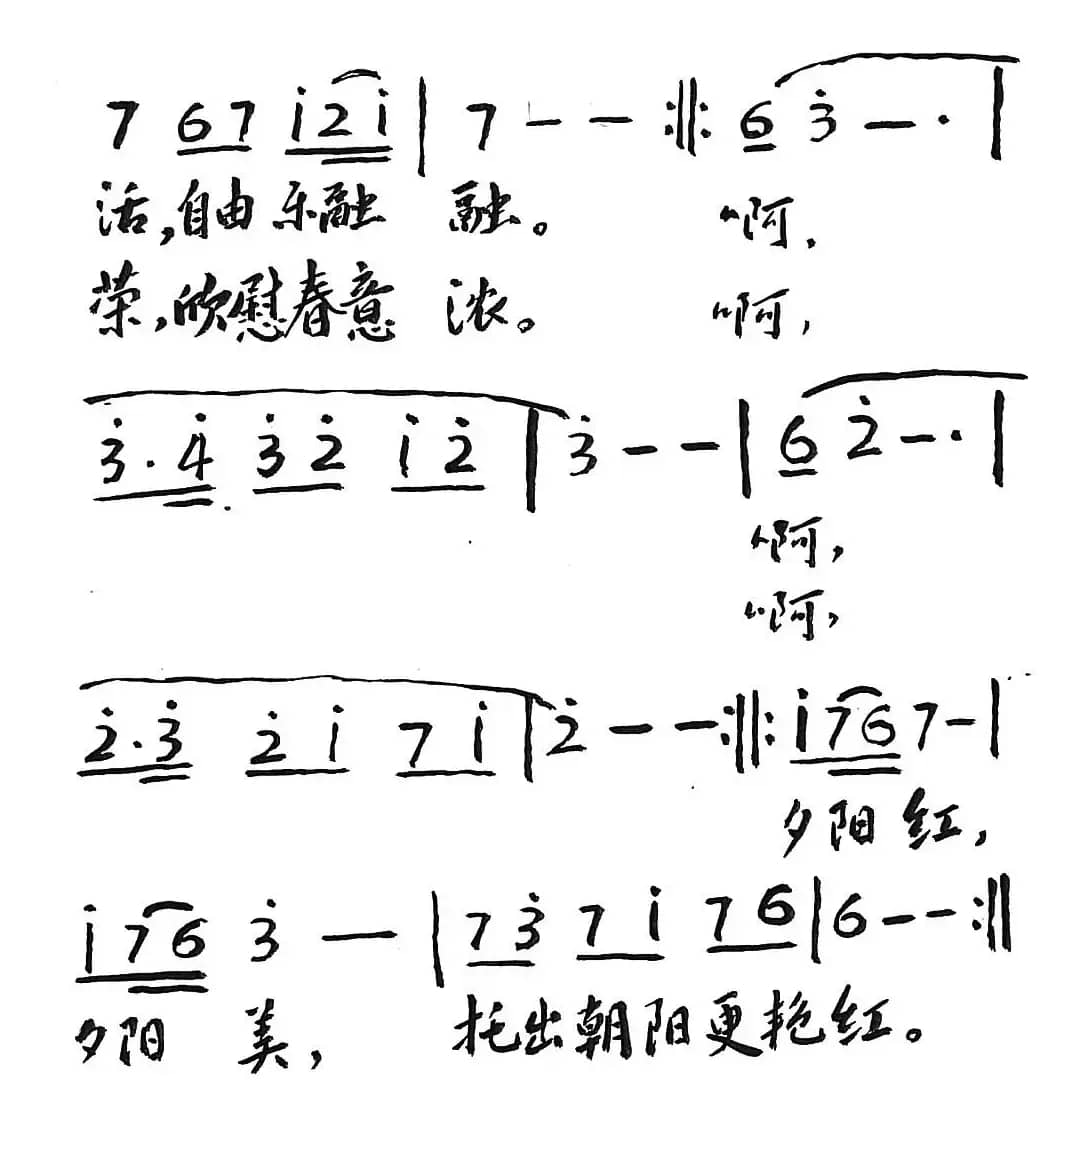 7 67 i̇2̇i̇ | 7 — — :||: 6 3̇ — · |
活,自由乐融 融。 啊,
荣,欣慰春意 浓。 啊,
3̇·4̇ 3̇2̇ i̇2̇ | 3̇ — — | 6 2̇ — · |
啊,
啊,
2̇·3̇ 2̇i̇ 7i̇ | 2̇ — — :||: i̇76 7 — |
夕阳 红,
i̇76 3̇ — | 73̇ 7i̇ 76 | 6 — — :||
夕阳 美, 托出朝阳更艳红。